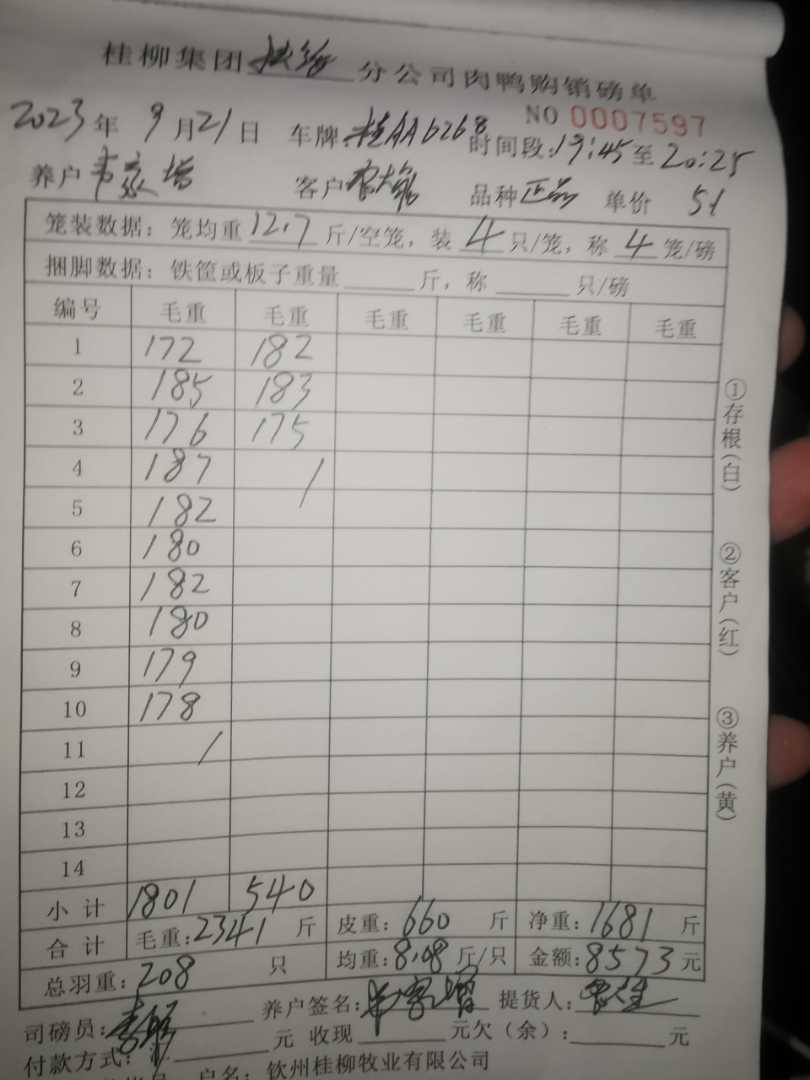 桂柳集团 分公司肉鸭购销磅单
NO 0007597
2023年 9月21日 车牌:桂AA6268 时间段:19:45至20:25
养户 韦家增 客户 品种 正品 单价 51
笼装数据：笼均重12.7斤/空笼，装4只/笼，称4笼/磅
捆脚数据：铁筐或板子重量 斤，称 只/磅
编号 毛重 毛重 毛重 毛重 毛重 毛重
1 172 182
2 185 183
3 176 175
4 187 /
5 182
6 180
7 182
8 180
9 179
10 178
11 /
12
13
14
小计 1801 540
合计 毛重:2341斤 皮重:660斤 净重:1681斤
总羽重:208只 均重:8.08斤/只 金额:8573元
司磅员: 养户签名:韦家增 提货人:
付款方式: 元 收现 元欠（余）: 元
户名：钦州桂柳牧业有限公司
①存根(白)
②客户(红)
③养户(黄)